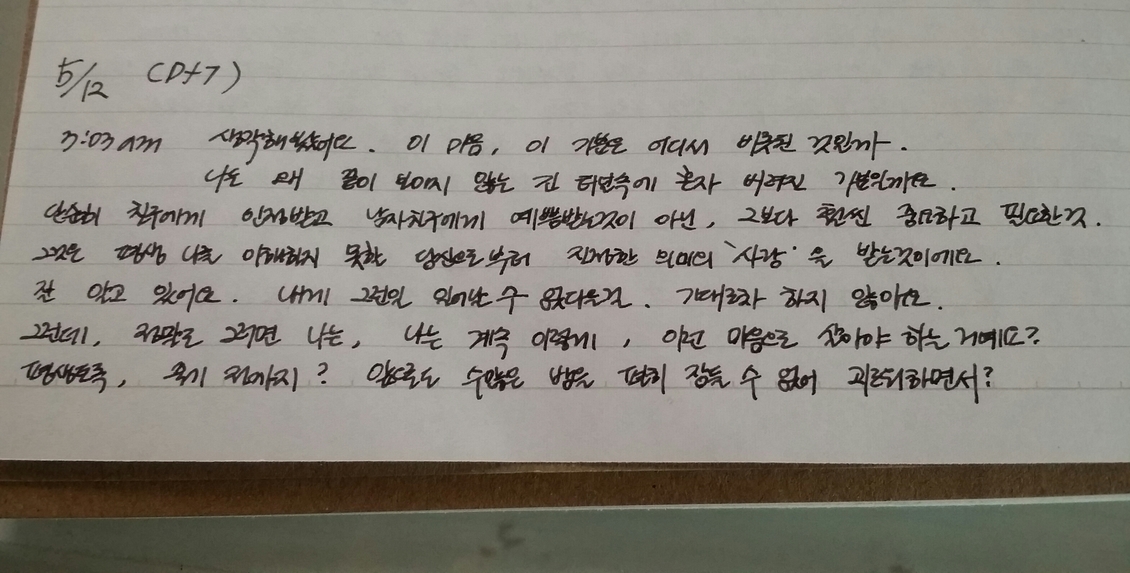 5/12 (D+7)
3:03am 생각해봤어요. 이 마음, 이 기분은 어디서 비롯된 것일까.
나는 왜 끝이 보이지 않는 긴 터널속에 혼자 버려진 기분일까요.
단순히 친구에게 인정받고 남자친구에게 예쁨받는것이 아닌, 그보다 훨씬 중요하고 필요한것.
그것은 평생 나를 이해하지 못한 당신으로부터 진정한 의미의 '사랑'을 받는것이에요.
잘 알고 있어요. 내게 그런일 일어날 수 없다는걸. 기대조차 하지 않아요.
그런데, 정말로 그러면 나는, 나는 계속 이렇게, 이런 마음으로 살아야 하는 거예요?
평생토록, 죽기 전까지? 앞으로도 수많은 밤을 편히 잠들 수 없어 괴로워하면서?